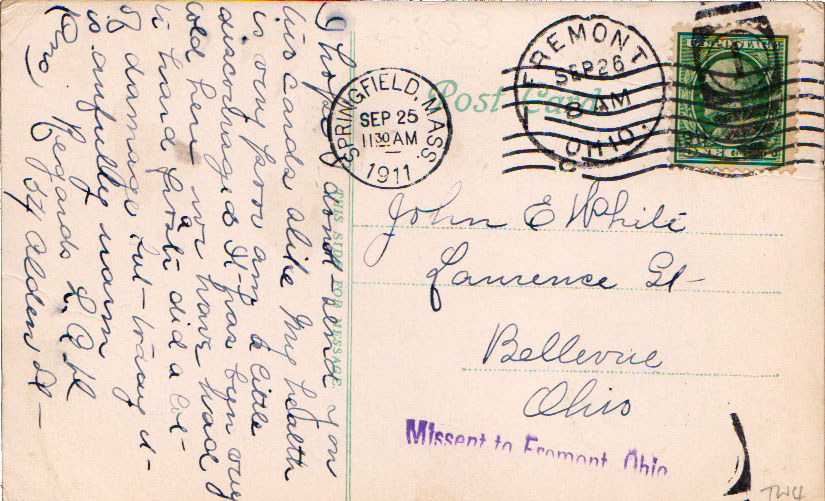 Post Card
SPRINGFIELD, MASS.
SEP 25
11 30 AM
1911
FREMONT
SEP 26
8 AM
OHIO.
THIS SIDE FOR MESSAGE
John E White
Laurence St
Bellevue
Ohio
Missent to Fremont, Ohio
I hope I dont send you
this cards alike My health
is very poor am a little
discouraged It has been very
cold here we have had
a hard frost did a lot
of damage but today it
is awfully warm
Regards L. A. H
54 Alden St
TW4